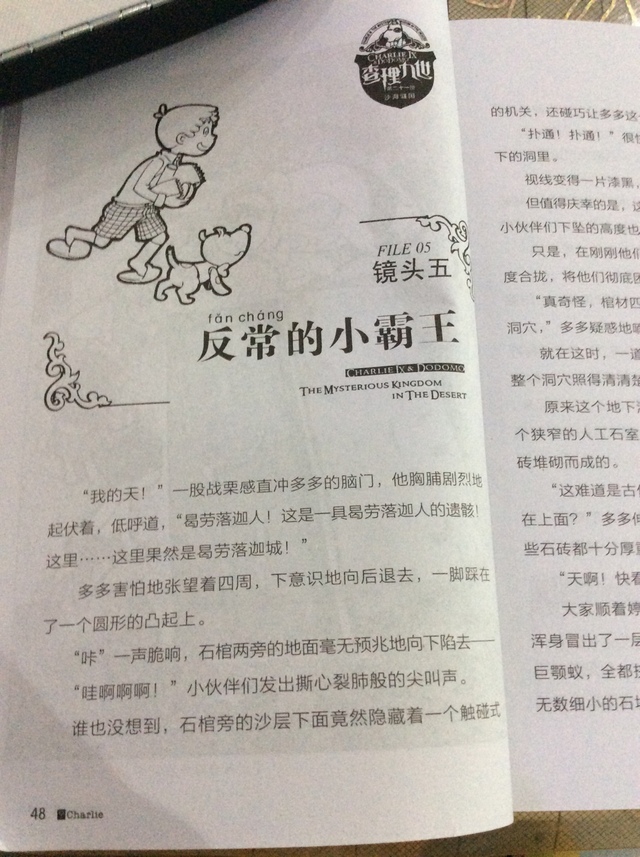 CHARLIE IX
& DODOMO
查理九世
FILE 05
镜头五
fǎn cháng
反常的小霸王
CHARLIE IX & DODOMO
THE MYSTERIOUS KINGDOM
IN THE DESERT
“我的天！”一股战栗感直冲多多的脑门，他胸脯剧烈地
起伏着，低呼道，“曷劳落迦人！这是一具曷劳落迦人的遗骸！
这里……这里果然是曷劳落迦城！”
多多害怕地张望着四周，下意识地向后退去，一脚踩在
了一个圆形的凸起上。
“咔”一声脆响，石棺两旁的地面毫无预兆地向下陷去——
“哇啊啊啊！”小伙伴们发出撕心裂肺般的尖叫声。
谁也没想到，石棺旁的沙层下面竟然隐藏着一个触碰式
48 Charlie
的机关，还碰巧让多多这
“扑通！扑通！”很
下的洞里。
视线变得一片漆黑，
但值得庆幸的是，
小伙伴们下坠的高度也
只是，在刚刚他们
度合拢，将他们彻底
“真奇怪，棺材四
洞穴，”多多疑惑地
就在这时，一道
整个洞穴照得清清楚
原来这个地下
个狭窄的人工石室
砖堆砌而成的。
“这难道是古
在上面？”多多
些石砖都十分厚重
“天啊！快看
大家顺着婷
浑身冒出了一层
巨颚蚁，全都
无数细小的石